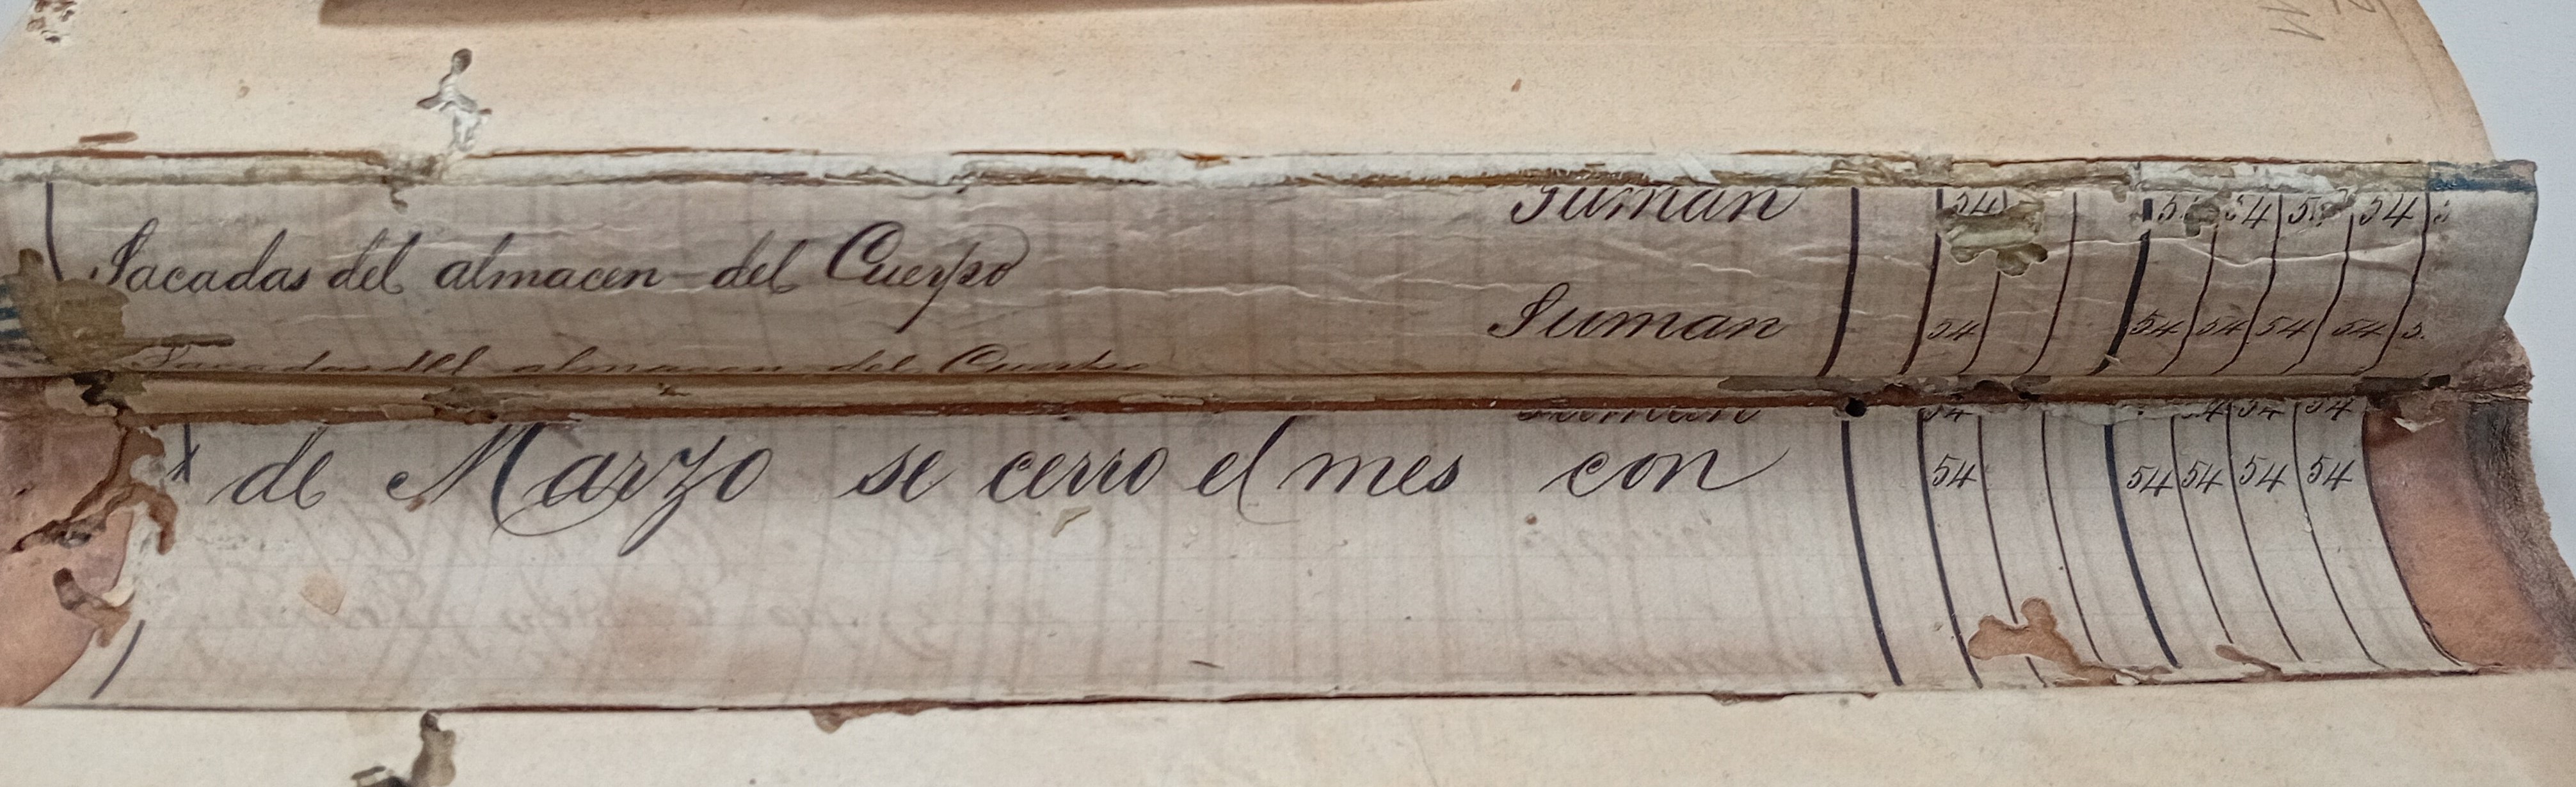 Suman 54 54 54
Sacadas del almacen del Cuerpo
Suman 54 54 54 54 54
Sacadas del almacen del Cuerpo
Suman 54 54 54 54
de Marzo se cerro el mes con 54 54 54 54 54